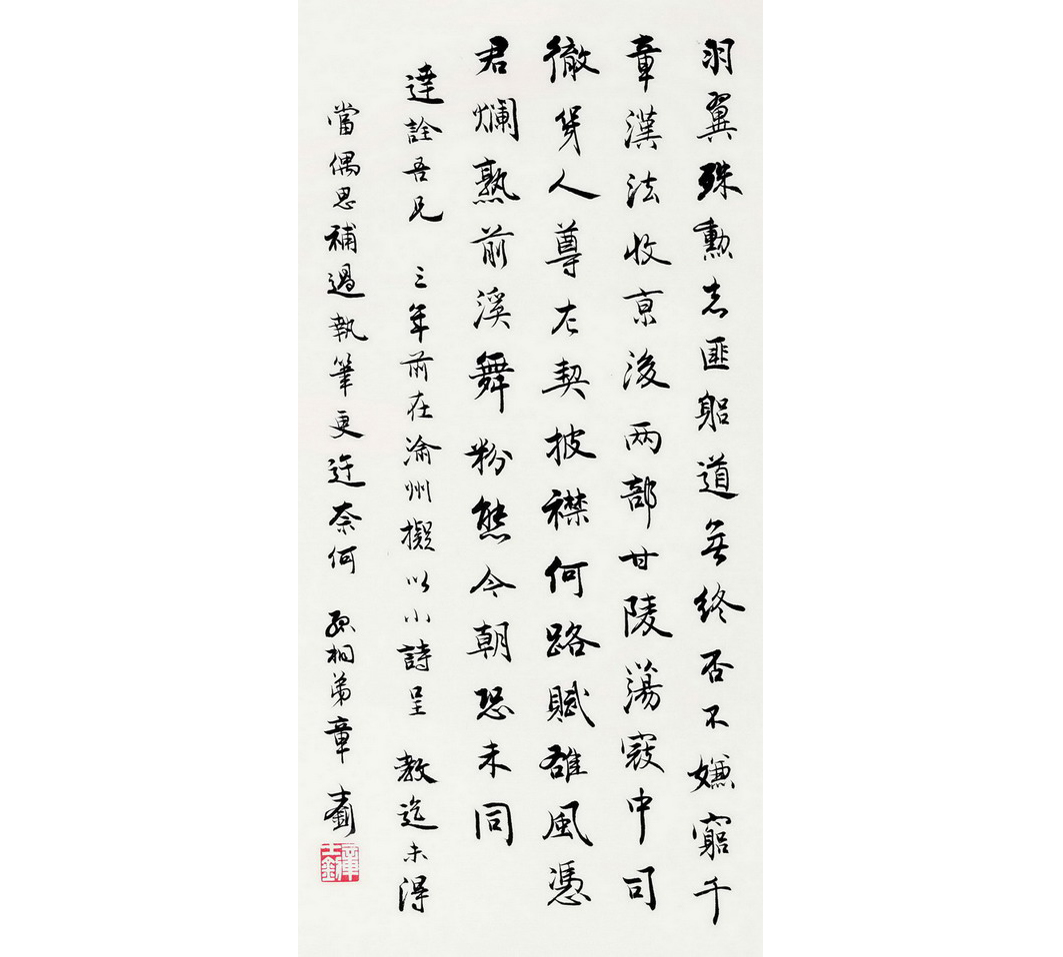 羽翼殊勳志匪躬道無終否不嫌窮千
章漢法收京後兩部甘陵蕩寇中司
徹舁人尊左契披襟何路賦雄風憑
君爛熟前溪舞粉態今朝恐未同
達詮吾兄 三年前在渝州擬以小詩呈 教迄未得
當偶思補過執筆更迂奈何 孤桐弟章士釗
章士釗